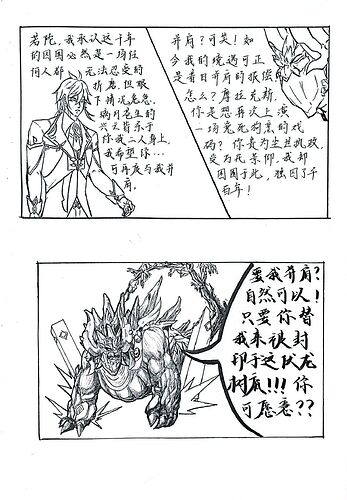 若陀，我承认这千年
的囚困必然是一场任
何人都无法忍受的
折磨，但眼
下情况危急，
璃月苍生的
兴亡皆系于
你我二人身上，
我希望你…
可再度与我并
肩。
并肩？可笑！如
今我的境遇可正
是昔日并肩的报偿
怎么？摩拉克斯，
你是想再次上演
一场兔死狗烹的戏
码？你贵为尘世执政，
受万民景仰，我却
困囿于此，独囚了千
百年！
要我并肩？
自然可以！
只要你替
我来被封
印于这伏龙
树底!!!你
可愿意??